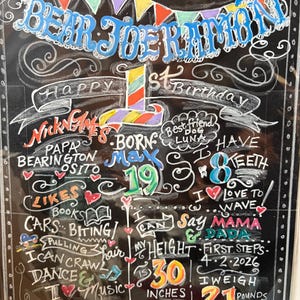 BEAR JOE RAPAPORT
Happy 1st Birthday
NICKNAMES
PAPA
BEARINGTON
OSITO
BORN:
May
19
Best friend
DOG
LUNA
I HAVE
8 TEETH
I LOVE TO
WAVE
LIKES
BOOK
CARS BITING!
PULLING hair
I CAN CRAWL
DANCE &
I Music
I CAN say MAMA
& DADA
MY HEIGHT
IS 30
INCHES
FIRST STEPS:
4·2·2026
I WEIGH
21 POUNDS